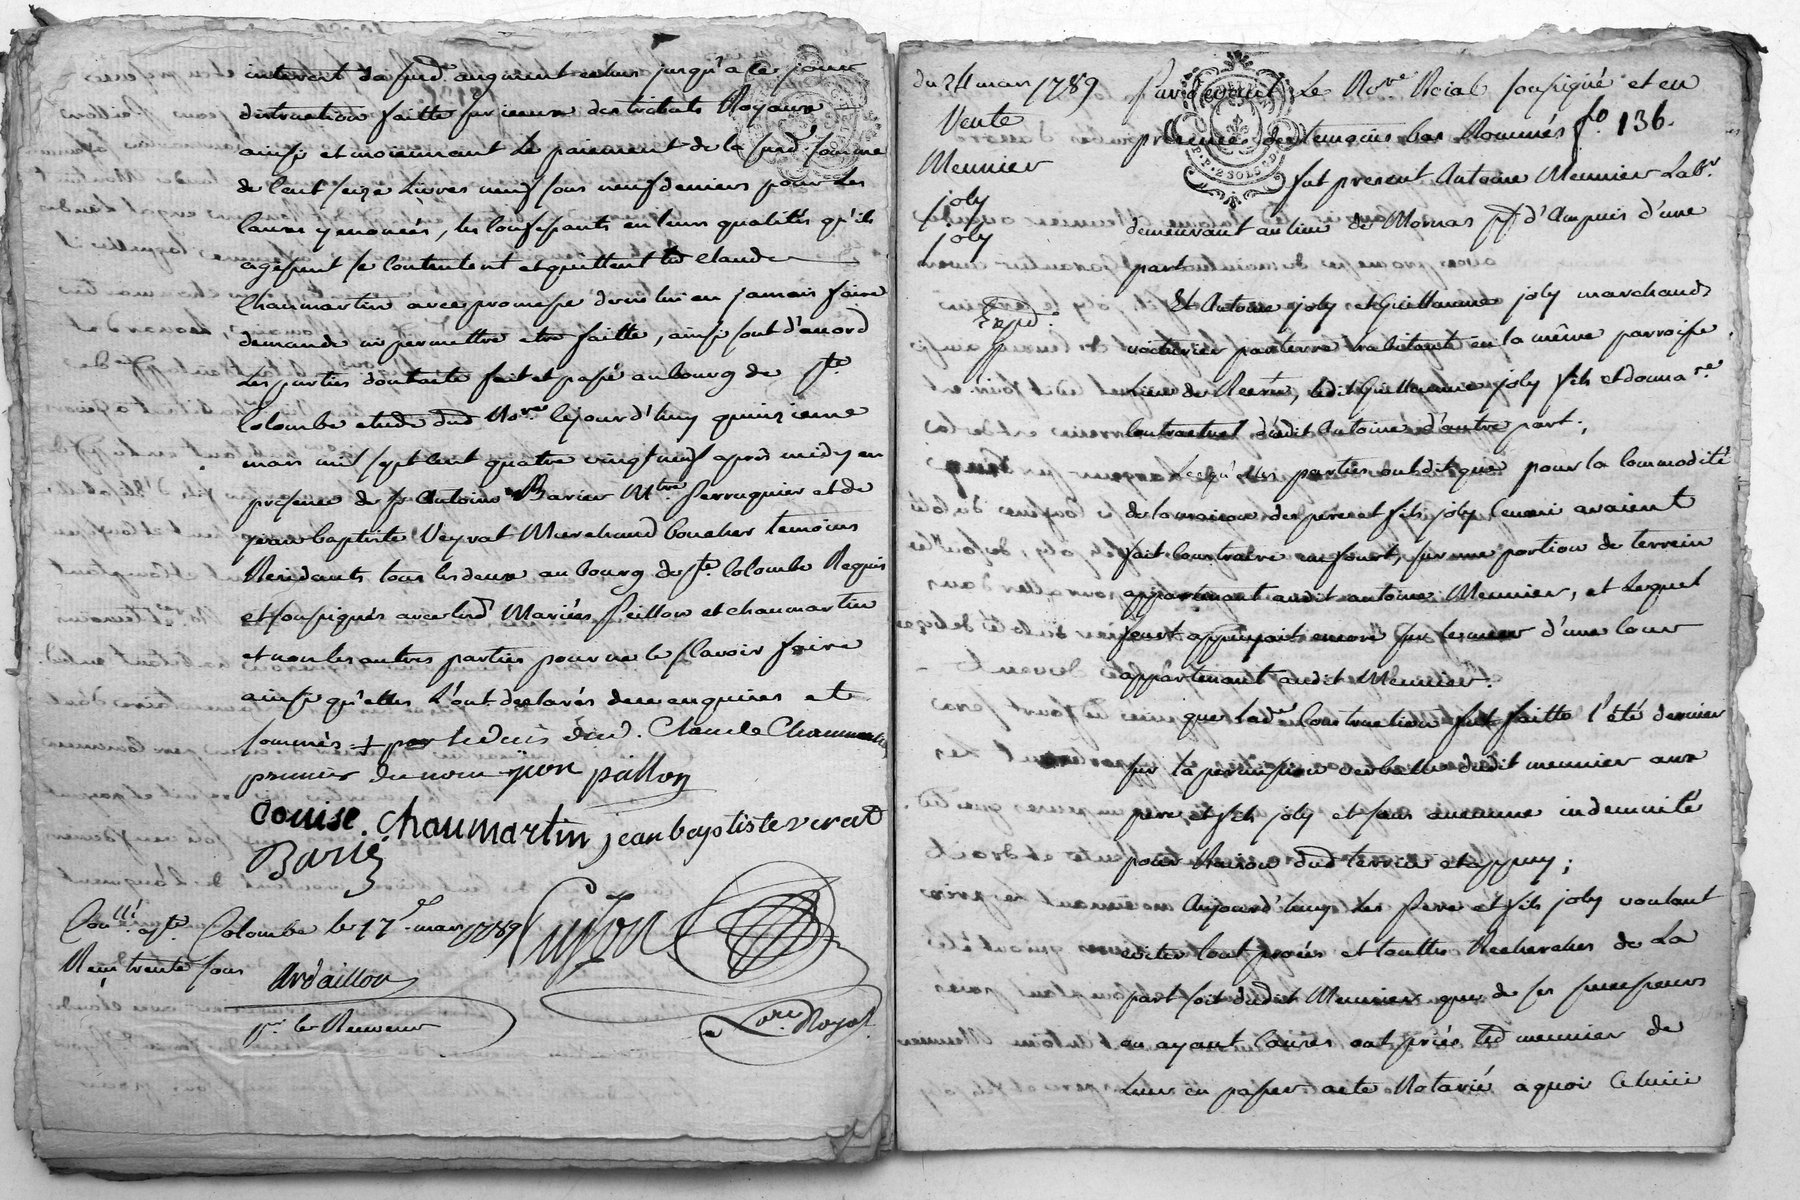 interest da susd. augment echus jusqu'a ce jour
distraction faitte sur iceux des tributs Royaux
ainsi et moiennant le paiement de la susd. somme
de Cent seize Livres neuf sous neuf deniers pour les
causes y enoncées, les Confessants en leurs qualités qu'ils
agissent se Contentent et quittent led Claude
Chaumartin avec promesse de ne lui en jamais faire
demande ni permettre etre faitte, ainsi sont d'accord
Les parties dont acte fait et passé au bourg de Ste
Colombe etude dud No.re Cejourd'huy quinzieme
mars mil sept Cent quatre vingt neuf après midy en
presence de sr Antoine Barier M.tre Perruquier et de
jean baptiste Veyrat Marchand boucher temoins
Residants tous les deux au bourg de Ste Colombe Requis
et soussignés avec lesd Mariés Peillon et chaumartin
et non les autres parties pour ne le sçavoir faire
ainsi qu'elles L'ont declarés de ce enquises et
sommés + Claude Chaumartin
premier du nom pillon
Louise. Chaumartin jean baptiste verat
Barié
Con.lé a Ste Colombe le 17 mars 1789
Reçu trente sous
Ardaillon
pr. le Receveur
No.re Royal
du 24 mars 1789
Vente
Meunier
joly
joly
Exped.e
Pardevant Le No.re Roial soussigné et en
presence des temoins bas Nommés
fo. 136.
fut present Antoine Meunier Lab.r
demeurant au lieu de Mornas psse d'Ampuis d'une
part
Et Antoine joly et Guillaume joly marchands
voiturier par terre habitants en la même parroisse
Lieu de Reern, ledit Guillaume joly fils et donna.re
Contractuel dudit Antoine d'autre part;
Lesqu'elles parties ont dit que pour la Commodité
de la maison des pere et fils joly Ceux ci avaient
fait Construire un fourt, sur une portion de terrein
appartenant audit antoine Meunier, et Lequel
fourt appuyait encore sur les murs d'une Cour
appartenant audit Meunier.
que Lad.e Construction fut faitte l'été dernier
sur la permission verballe dudit meunier aux
pere et fils joly et sans aucune indemnité
pour Raison dud terrein et appuy;
Aujourd'huy Les Pere et fils joly voulant
eviter tout procés et touttes Recherches de La
part soit dudit Meunier que de ses successeurs
ou ayant Causes ont priés led meunier de
Leur en passer acte Notarié a quoi Celuici